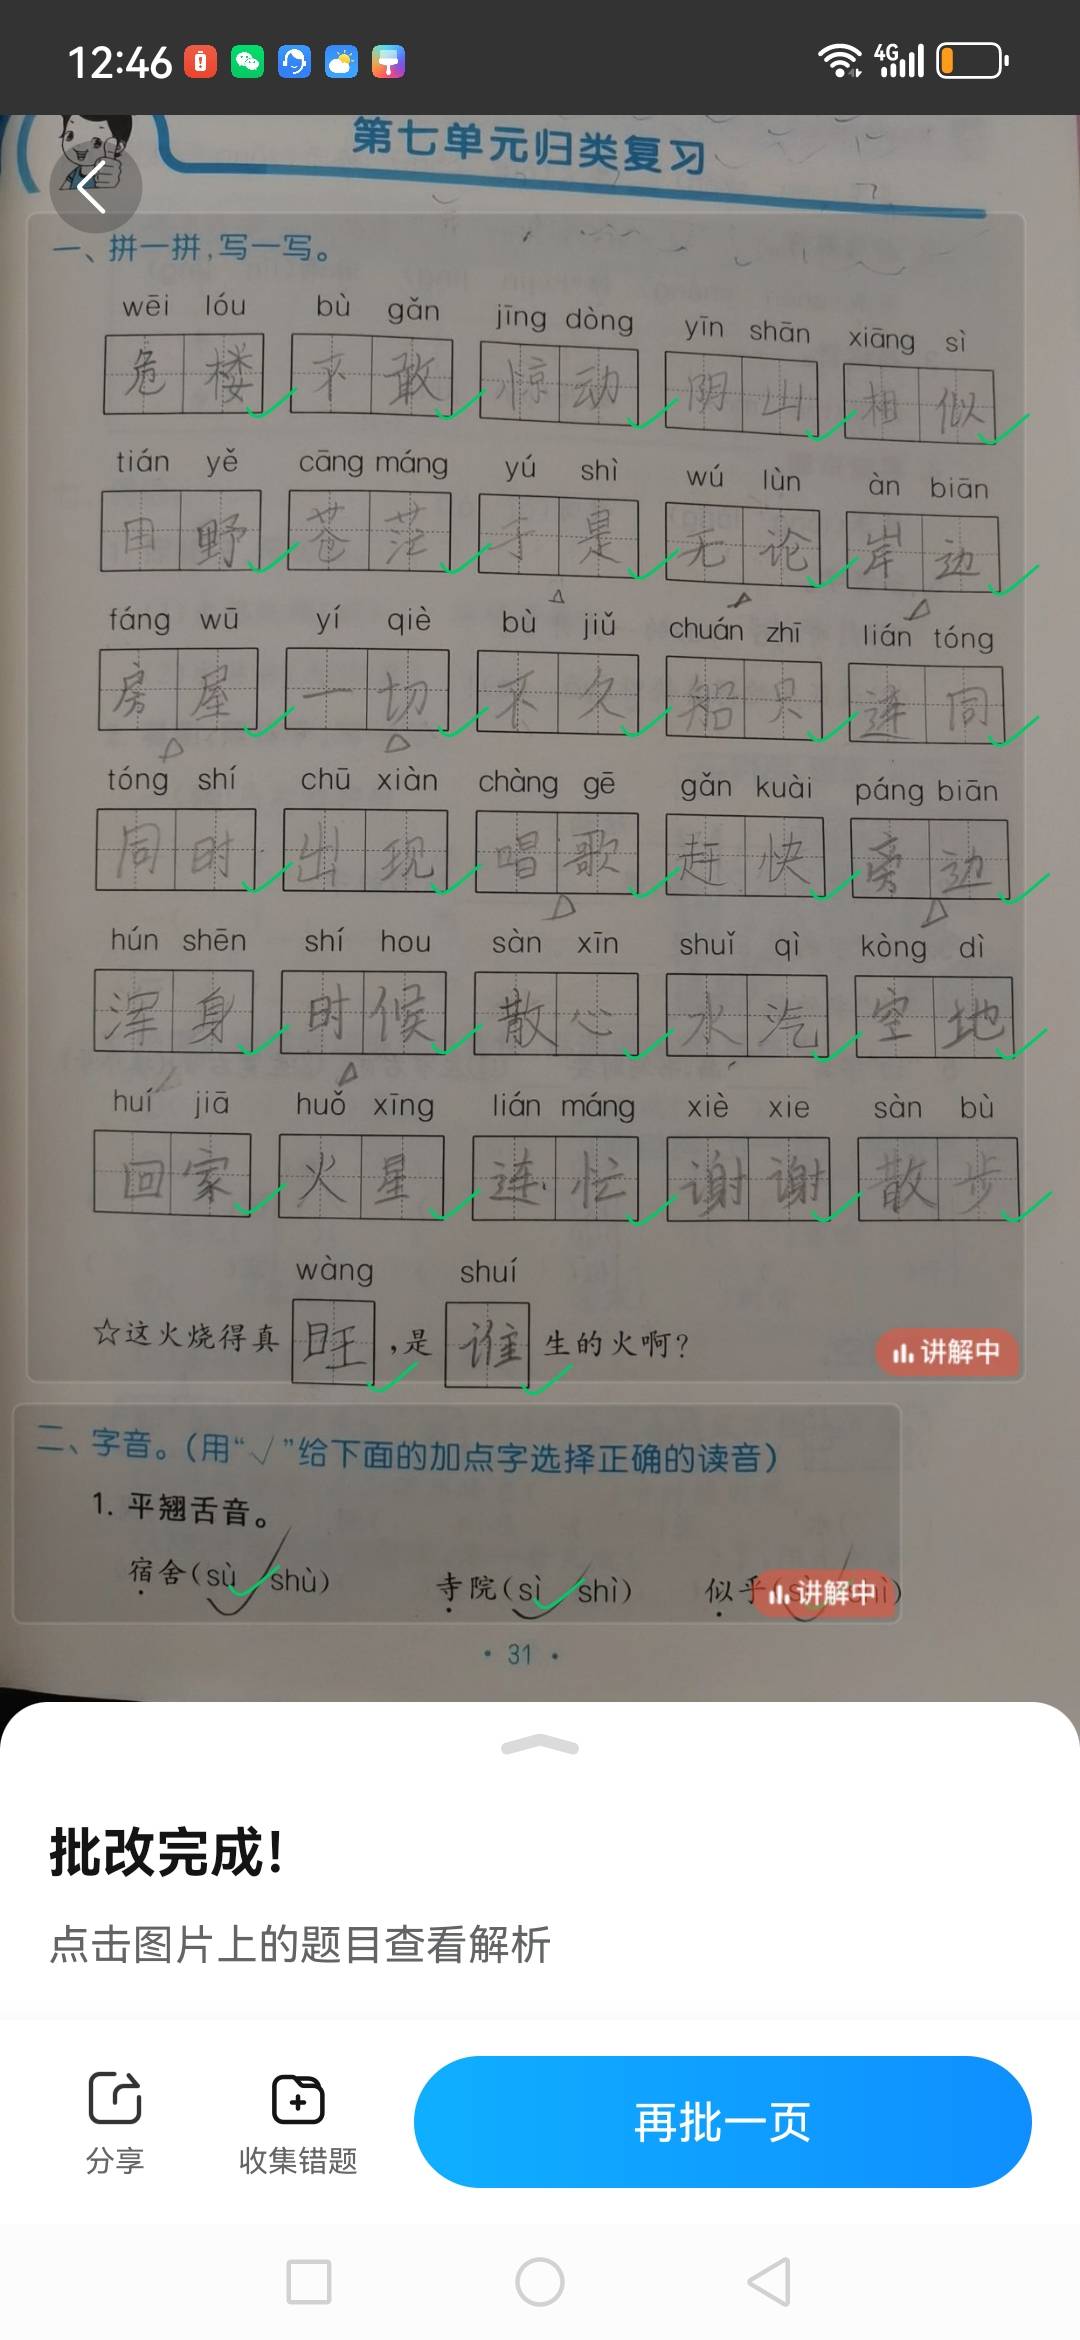 12:46
4G
第七单元归类复习
一、拼一拼,写一写。
wēi lóu bù gǎn jīng dòng yīn shān xiāng sì
危楼 不敢 惊动 阴山 相似
tián yě cāng máng yú shì wú lùn àn biān
田野 苍茫 于是 无论 岸边
fáng wū yí qiè bù jiǔ chuán zhī lián tóng
房屋 一切 不久 船只 连同
tóng shí chū xiàn chàng gē gǎn kuài páng biān
同时 出现 唱歌 赶快 旁边
hún shēn shí hou sàn xīn shuǐ qì kòng dì
浑身 时候 散心 水汽 空地
huí jiā huǒ xīng lián máng xiè xie sàn bù
回家 火星 连忙 谢谢 散步
wàng shuí
☆这火烧得真旺,是谁生的火啊?
讲解中
二、字音。(用“√”给下面的加点字选择正确的读音)
1. 平翘舌音。
宿舍(sù shù) 寺院(sì shì) 似乎
讲解中
• 31 •
批改完成!
点击图片上的题目查看解析
分享
收集错题
再批一页